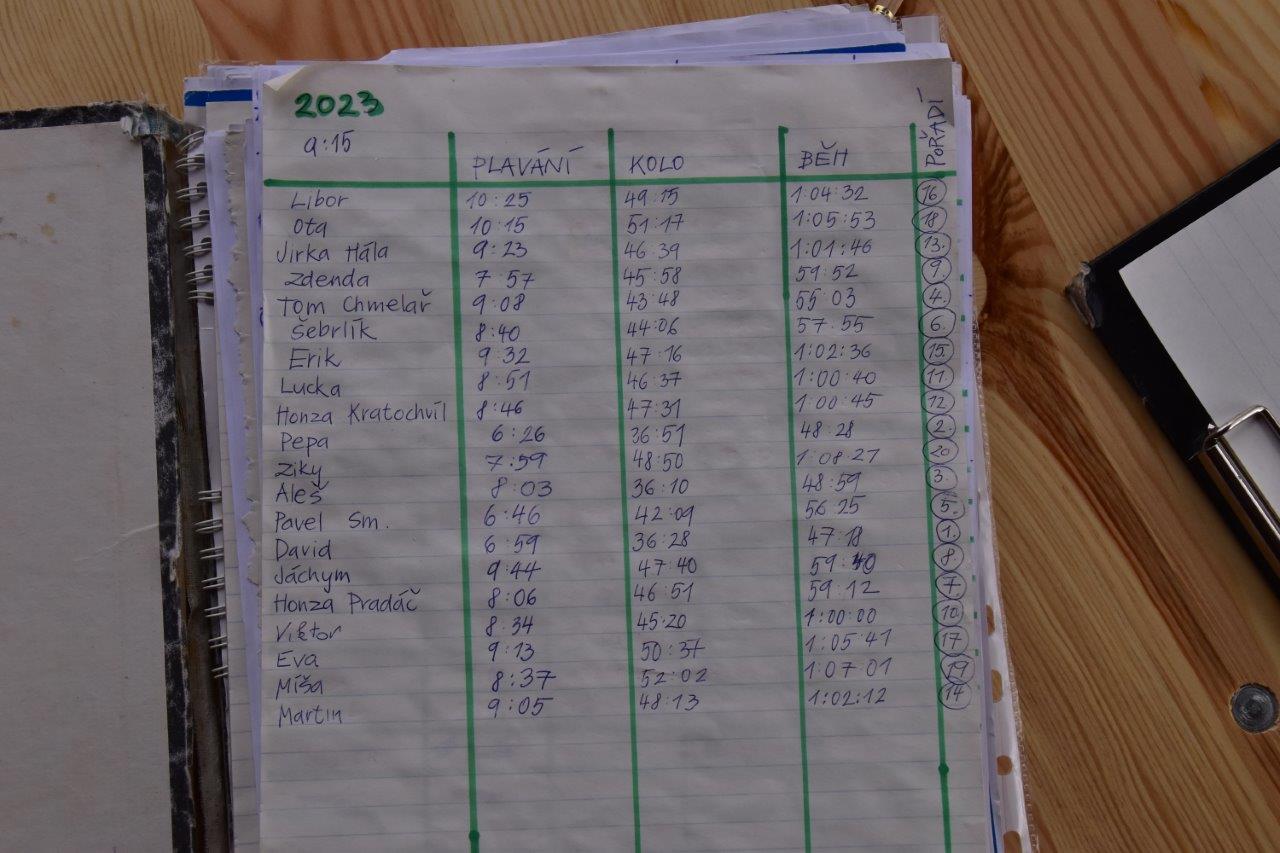 2023
9:15 PLAVÁNÍ KOLO BĚH POŘADÍ
Libor 10:25 49:15 1:04:32 16
Ota 10:15 51:17 1:05:53 18
Jirka Hála 9:23 46:39 1:01:46 13.
Zdenda 7:57 45:58 59:52 9.
Tom Chmelař 9:08 43:48 55:03 4.
Šebrlík 8:40 44:06 57:55 6.
Erik 9:32 47:16 1:02:36 15.
Lucka 8:51 46:37 1:00:40 11
Honza Kratochvíl 8:46 47:31 1:00:45 12
Pepa 6:26 36:51 48:28 2.
Ziky 7:59 48:50 1:08:27 20
Aleš 8:03 36:10 48:59 3.
Pavel Sm. 6:46 42:09 56:25 5.
David 6:59 36:28 47:18 1.
Jáchym 9:44 47:40 59:40 8
Honza Pradáč 8:06 46:51 59:12 7
Viktor 8:34 45:20 1:00:00 10
Eva 9:13 50:37 1:05:41 17
Míša 8:37 52:02 1:07:01 19
Martin 9:05 48:13 1:02:12 14